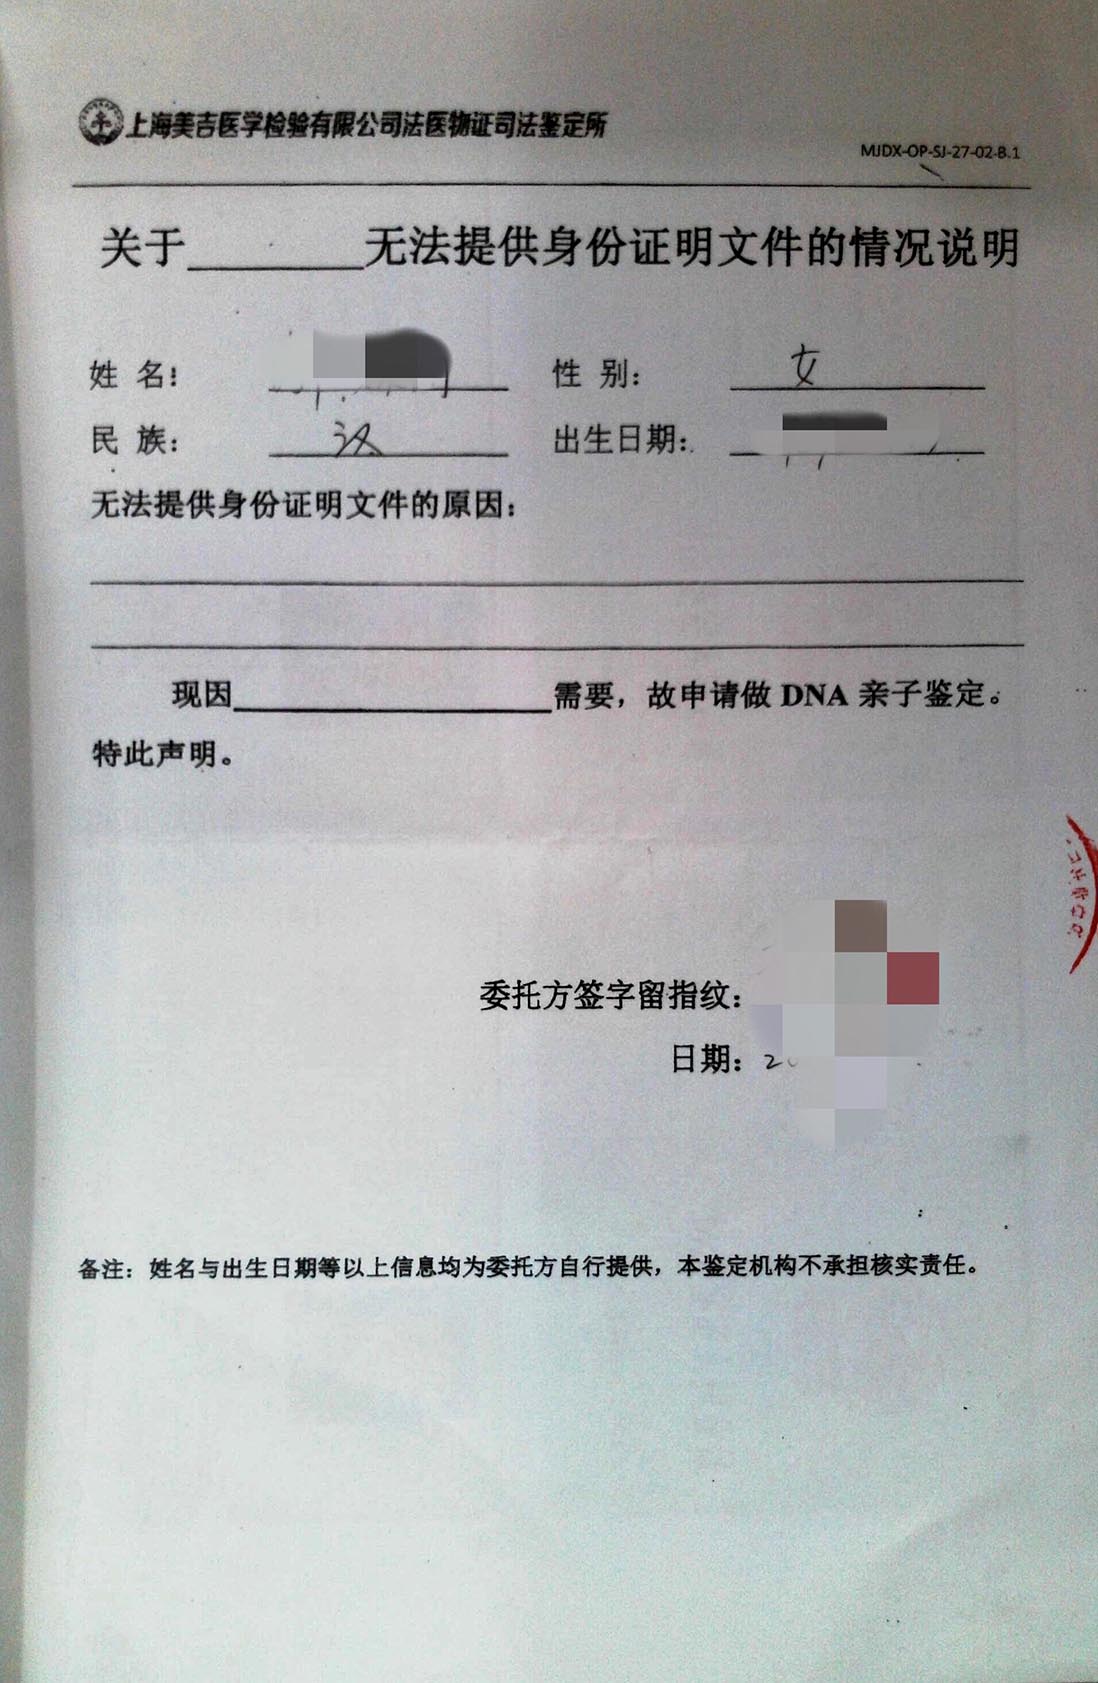 上海美吉医学检验有限公司法医物证司法鉴定所
MJDX-OP-SJ-27-02-B.1
关于________无法提供身份证明文件的情况说明
姓 名: 性 别: 女
民 族: 汉 出生日期:
无法提供身份证明文件的原因:
现因________需要，故申请做 DNA 亲子鉴定。
特此声明。
委托方签字留指纹:
日期: 2
备注: 姓名与出生日期等以上信息均为委托方自行提供，本鉴定机构不承担核实责任。